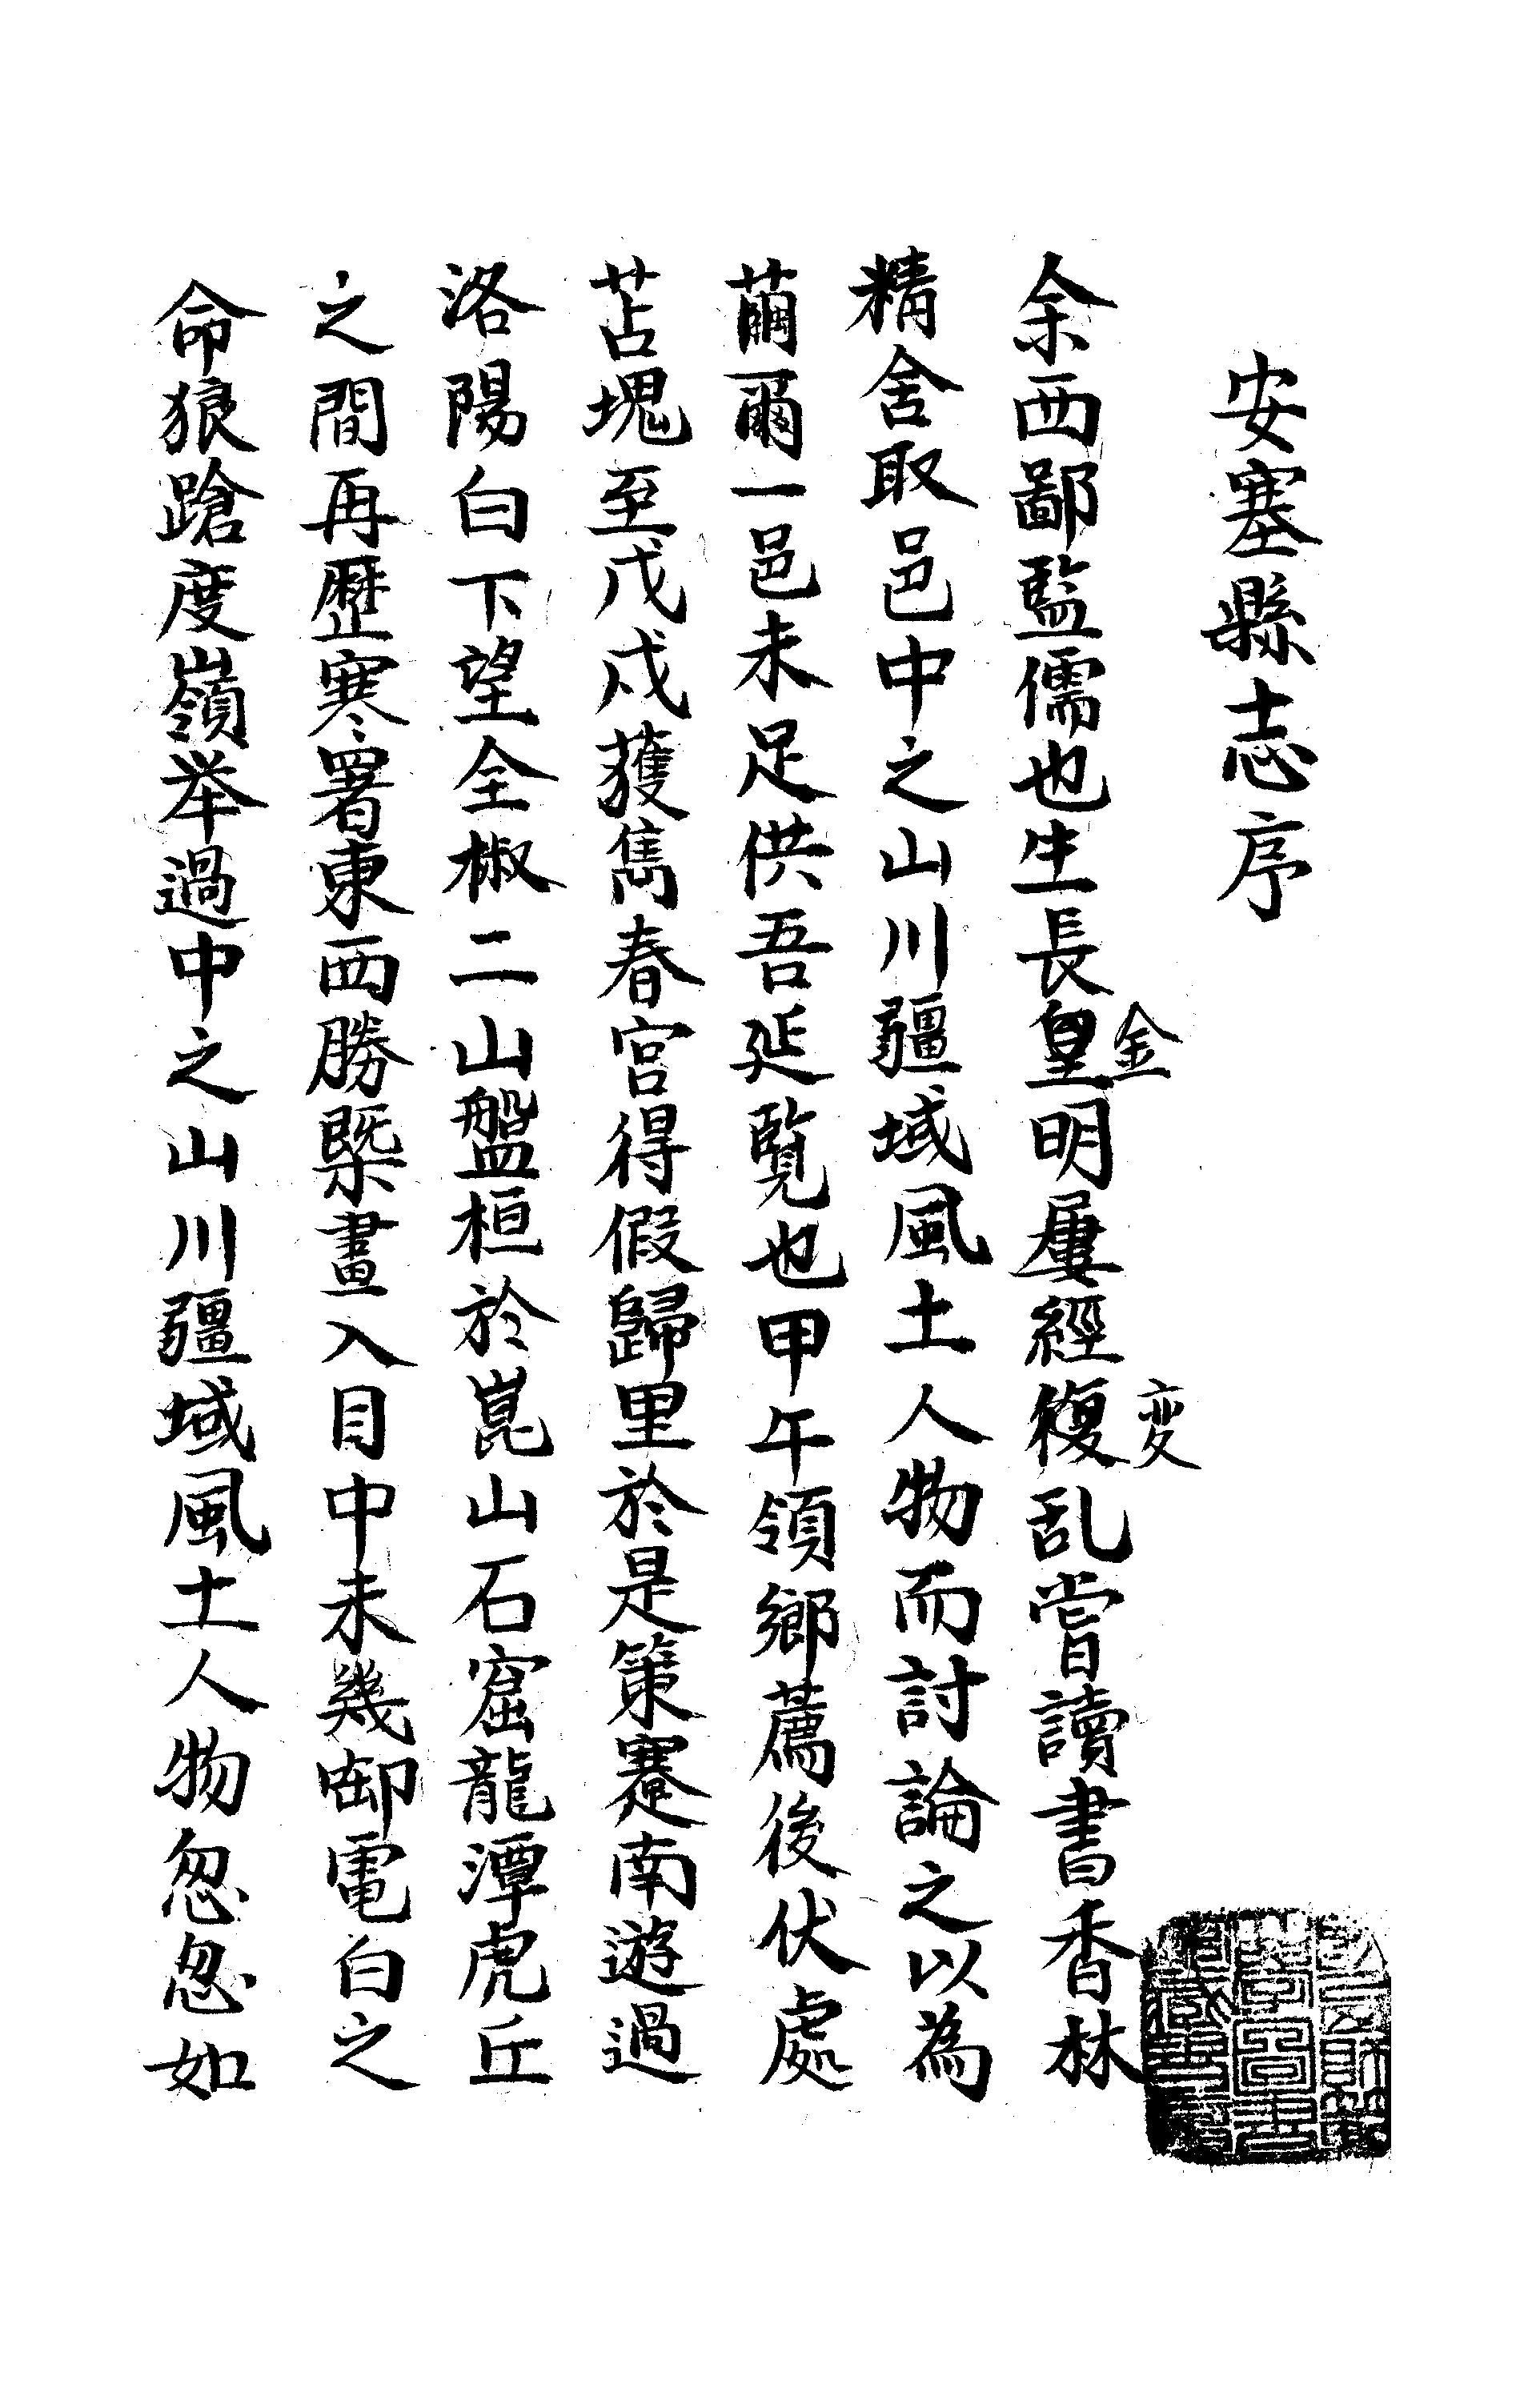 安塞縣志序
余西鄙監儒也生長皇明屢經複乱嘗讀書香林
金
変
精舍取邑中之山川疆域風土人物而討論之以為
繭爾一邑未足供吾延覽也甲午領鄉薦後伏處
苫塊至戊戌獲雋春宮得假歸里於是策蹇南遊過
洛陽白下望全椒二山盤桓於崑山石窟龍潭虎丘
之間再歷寒署東西勝槩畫入目中未幾卸電白之
命狼蹌度嶺举過中之山川疆域風土人物忽忽如